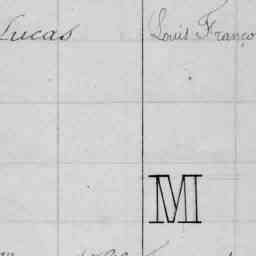 Lucas Louis Franço
M